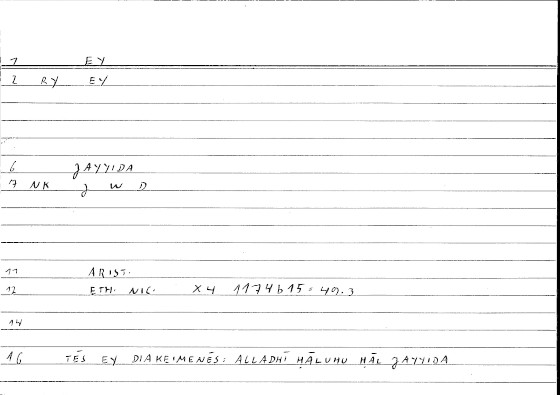 1 EY
2 RY EY
6 ǧAYYIDA
7 NK ǧ W D
11 ARIST.
12 ETH. NIC. X4 1174b15 = 401.3
14
16 TĒS EY DIAKEIMENĒS: ALLADHĪ ḤĀLUHU ḤĀL ǧAYYIDA